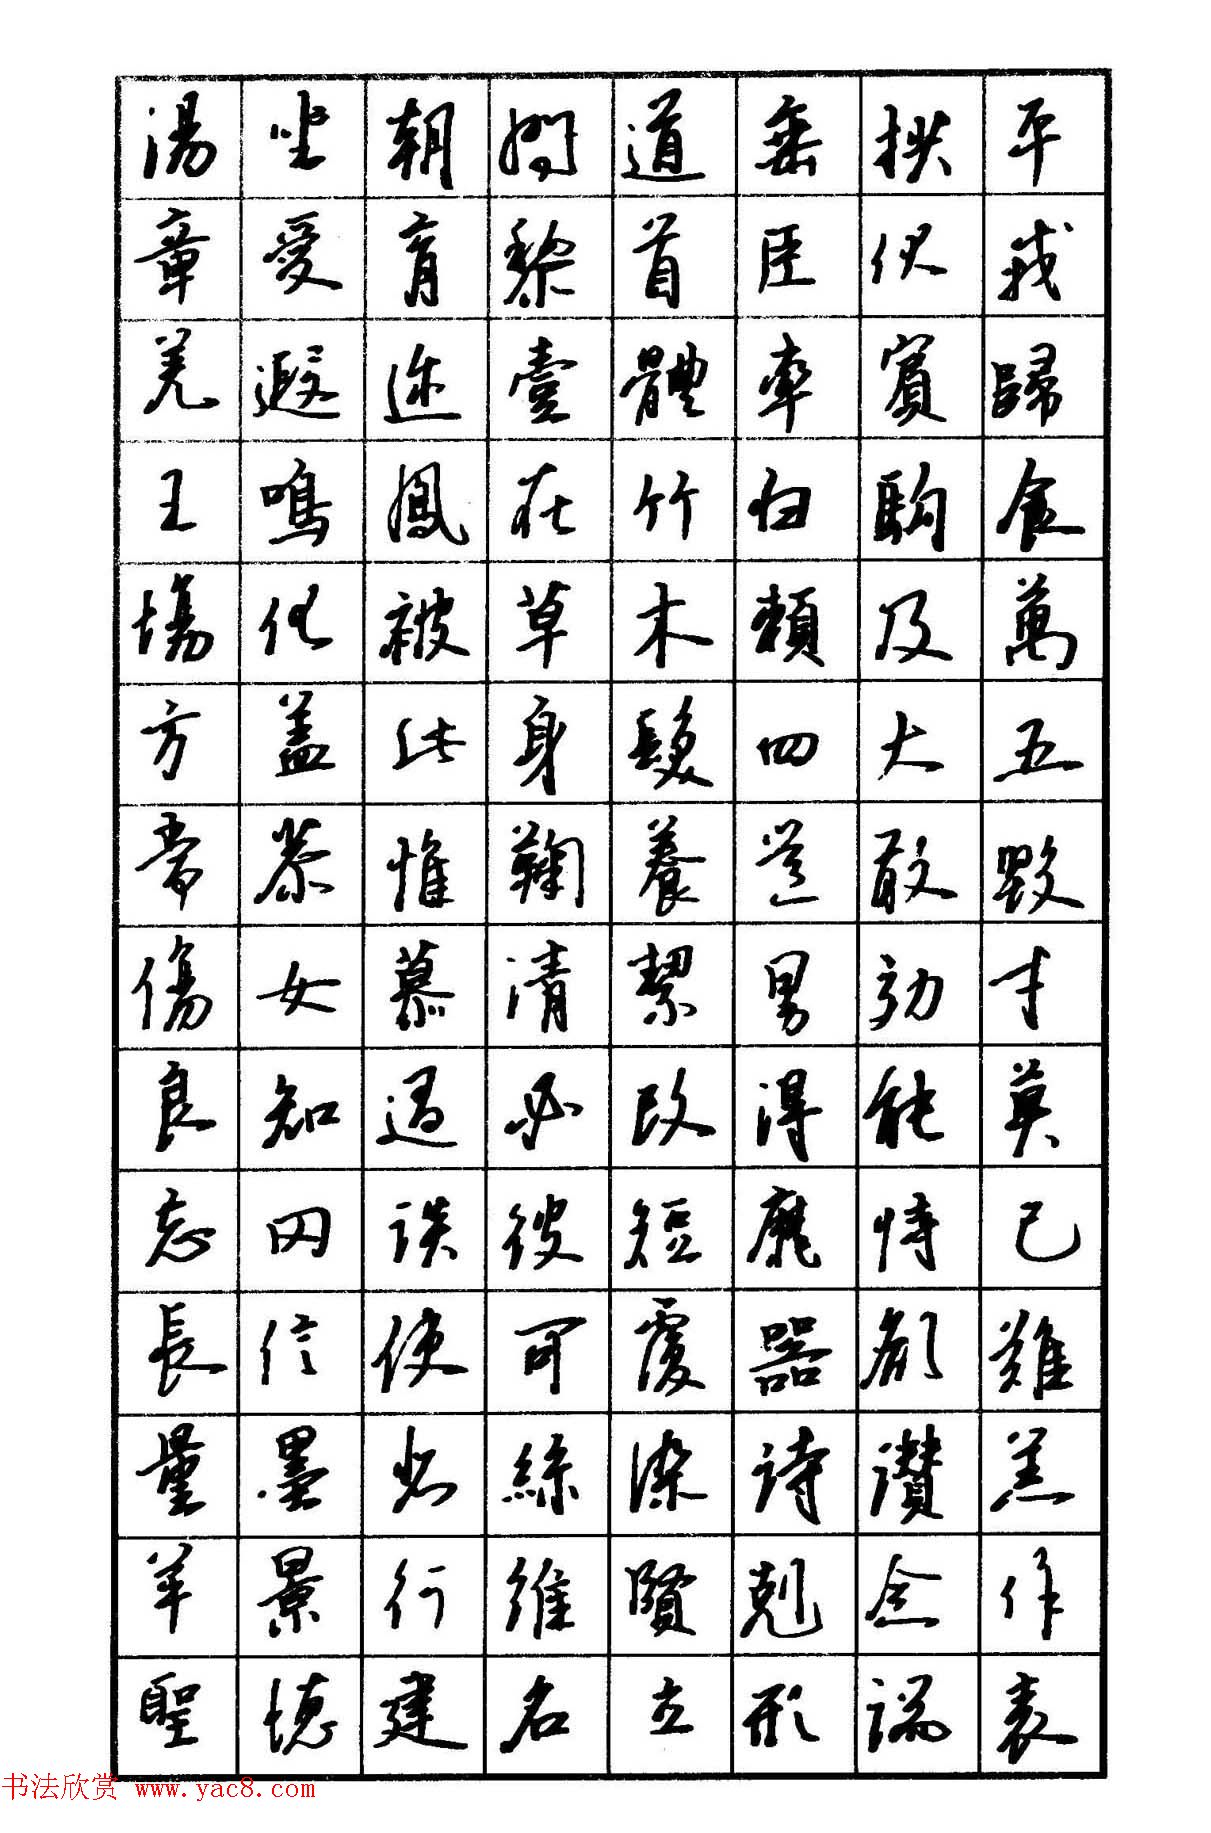 湯坐朝問道垂拱平
章愛育黎首臣伏戎
羌遐迩壹體率賓歸
王鳴鳳在竹白駒食
場化被草木賴及萬
方盖此身髮四大五
常恭惟鞠養豈敢毀
傷女慕清絜男効才
良知過必改得能莫
忘罔談彼短靡恃己
長信使可覆器欲難
量墨悲絲染詩讚羔
羊景行維賢剋念作
聖德建名立形端表
书法欣赏 www.yac8.com